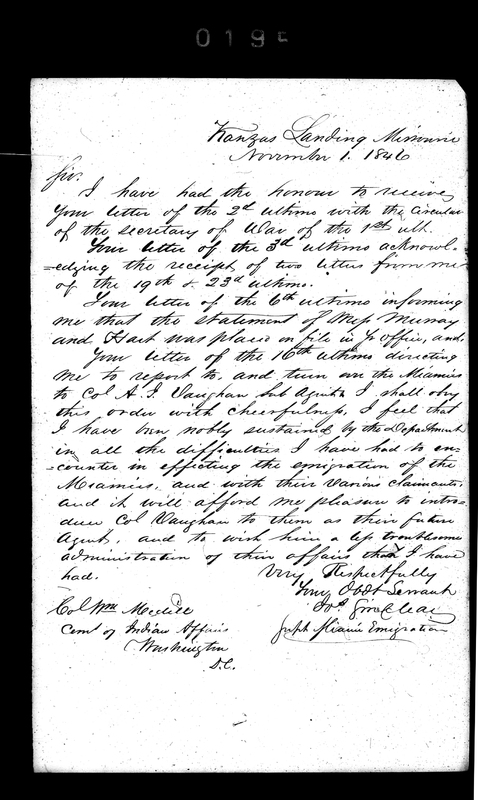 0195
Kanzas Landing Missouri
November 1. 1846
Sir.
I have had the honour to receive
your letter of the 2d ultimo with the Circular
of the secretary of War of the 1st ult.
Your letter of the 3d ultimo acknowl-
=edging the receipt of two letters from me
of the 19th & 23d ultimo.
Your letter of the 6th ultimo informing
me that the statement of Mess Murray
and Hart was placed on file in Yr office, and.
Your letter of the 16th ultimo directing
me to report to, and turn over the Miamies
to Col A. J. Vaughan Sub Agent. I shall obey
this order with cheerfulness, I feel that
I have been nobly sustained by the Department
in all the difficulties I have had to en=
=counter in effecting the emigration of the
Miamies, and with their various claimants
and it will afford me pleasure to intro=
duce Col Vaughan to them as their future
Agent, and to wish him a less troublesome
administration of their affairs than I have
had.
Very Respectfully
Your Obdt Servant
Jos. Sinclear
Supt Miamie Emigration
Col Wm Medill
Comr of Indian Affairs
Washington
D.C.